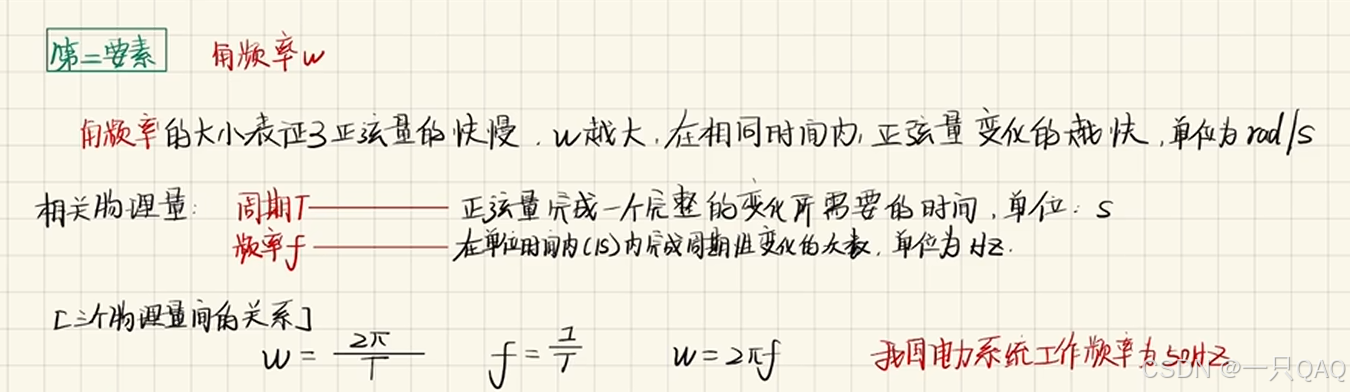 第二要素 角频率w
角频率的大小表证了正弦量的快慢.w越大,在相同时间内,正弦量变化的越快,单位为rad/s
相关物理量: 周期T——正弦量完成一个完整的变化所需要的时间,单位:s
频率f——在单位时间内(1s)内完成周期性变化的次数,单位为Hz.
[三个物理量间的关系]
w=2π/T f=1/T w=2πf 我国电力系统工作频率为50HZ
CSDN @一只QAQ